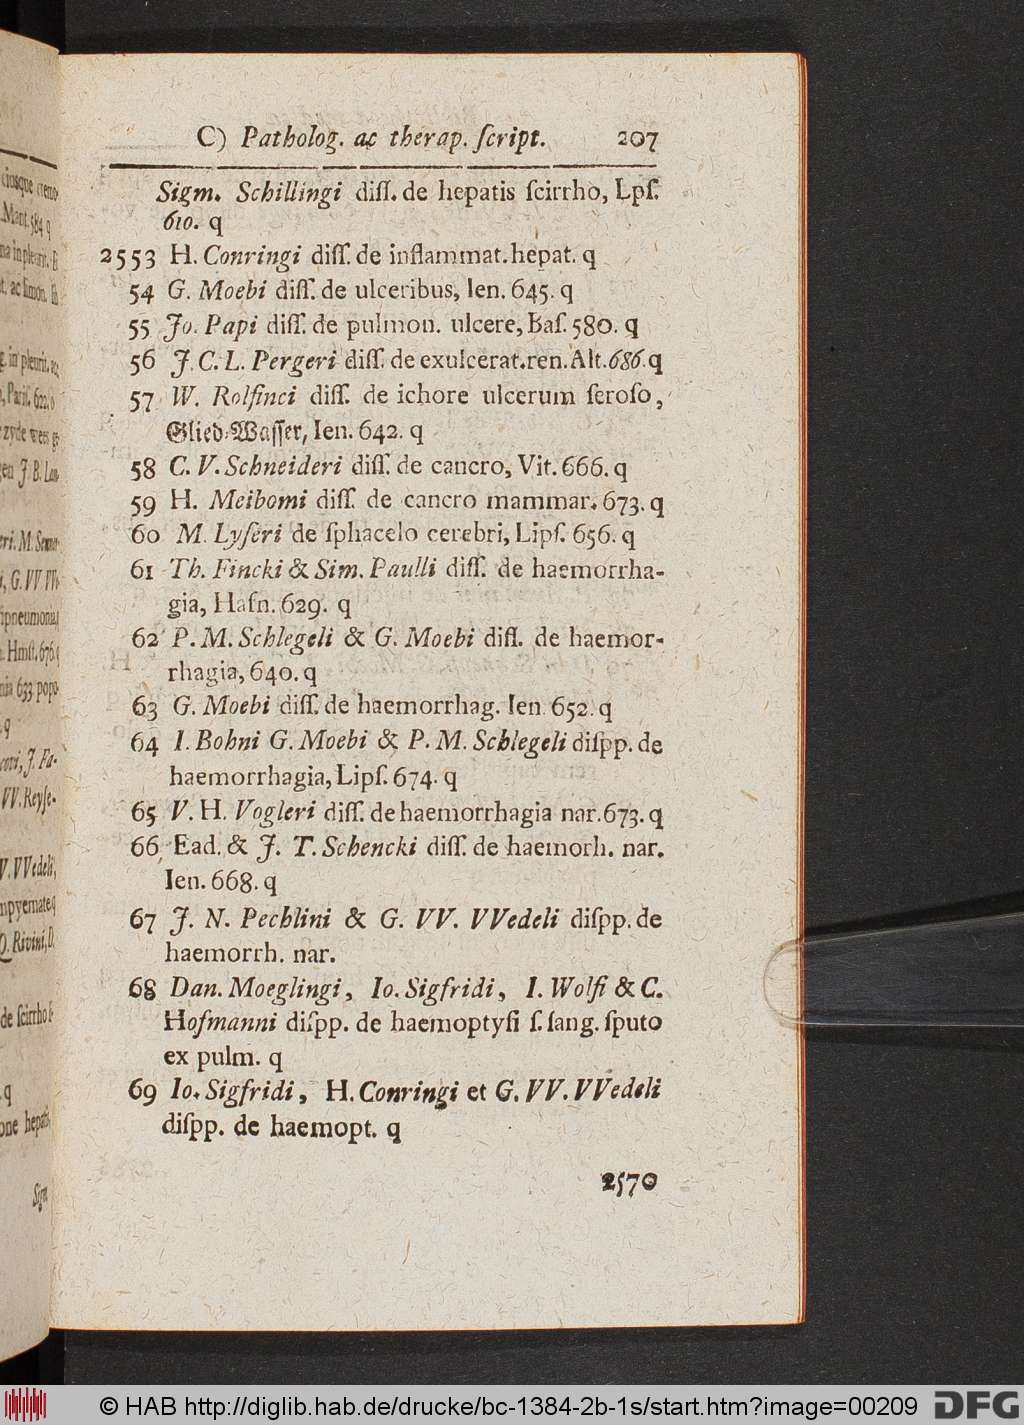 C) Patholog. ac therap. ſcript. 207
Sigm. Schillingi diſſ. de hepatis ſcirrho, Lpſ.
610. q
2553 H. Conringi diſſ. de inflammat. hepat. q
54 G. Moebi diſſ. de ulceribus, Ien. 645. q
55 Jo. Papi diſſ. de pulmon. ulcere, Baſ. 580. q
56 J. C. L. Pergeri diſſ. de exulcerat. ren. Alt. 686. q
57 W. Rolfinci diſſ. de ichore ulcerum ſeroſo,
Glied-Waſſer, Ien. 642. q
58 C. V. Schneideri diſſ. de cancro, Vit. 666. q
59 H. Meibomi diſſ. de cancro mammar. 673. q
60 M. Lyſeri de ſphacelo cerebri, Lipſ. 656. q
61 Th. Fincki & Sim. Paulli diſſ. de haemorrha-
gia, Hafn. 629. q
62 P. M. Schlegeli & G. Moebi diſſ. de haemor-
rhagia, 640. q
63 G. Moebi diſſ. de haemorrhag. Ien. 652. q
64 I. Bohni G. Moebi & P. M. Schlegeli diſpp. de
haemorrhagia, Lipſ. 674. q
65 V. H. Vogleri diſſ. de haemorrhagia nar. 673. q
66 Ead. & J. T. Schencki diſſ. de haemorh. nar.
Ien. 668. q
67 J. N. Pechlini & G. VV. VVedeli diſpp. de
haemorrh. nar.
68 Dan. Moeglingi, Io. Sigfridi, I. Wolfi & C.
Hofmanni diſpp. de haemoptyſi ſ. ſang. ſputo
ex pulm. q
69 Io. Sigfridi, H. Conringi et G. VV. VVedeli
diſpp. de haemopt. q
2570
© HAB http://diglib.hab.de/drucke/bc-1384-2b-1s/start.htm?image=00209
DFG